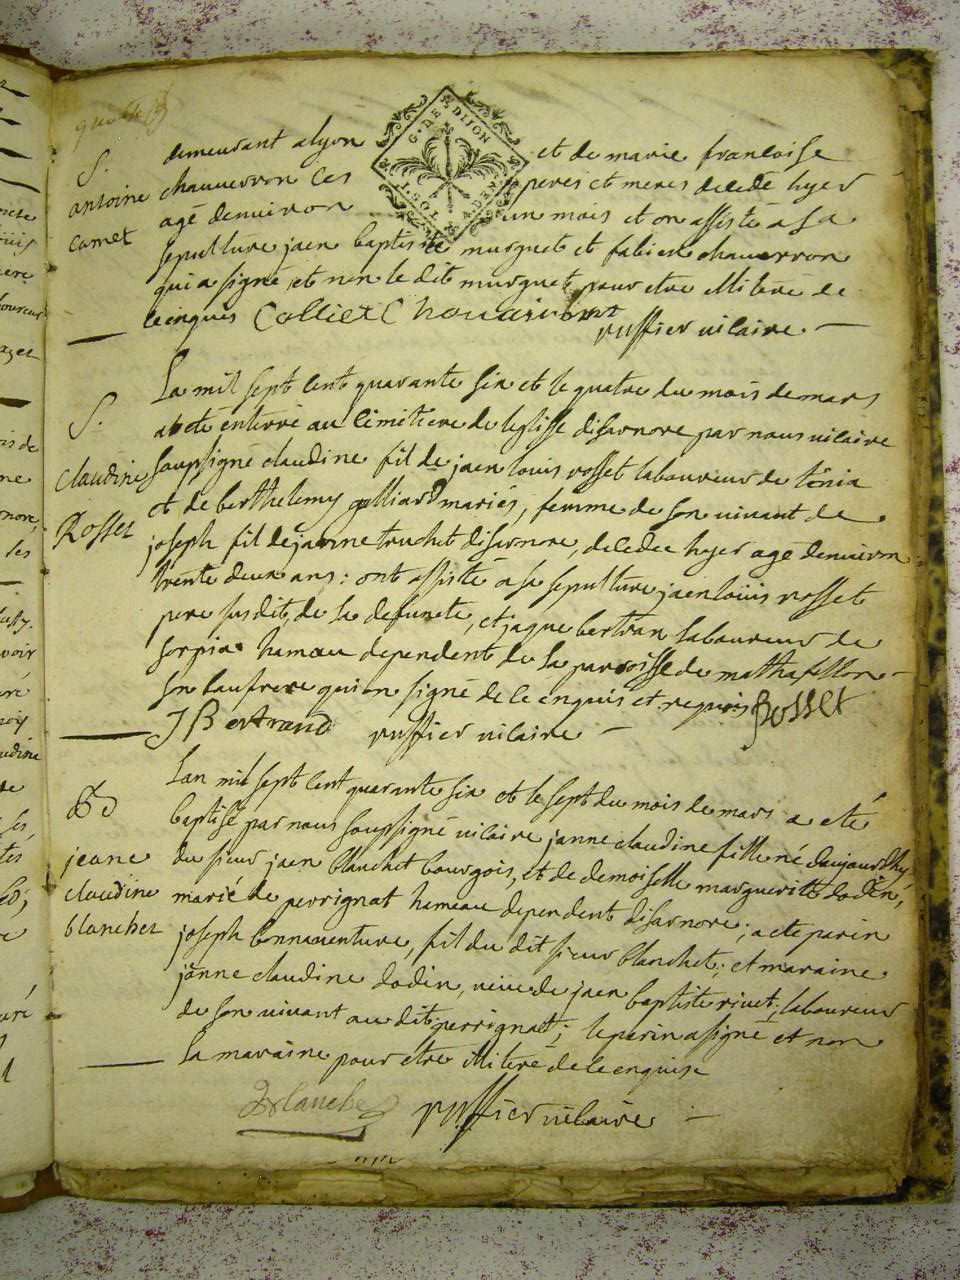 S.
antoine
camet
demeurant a lyon et de marie francoise
chauverron les peres et meres decedé hyer
agé denuiron un mois et on assisté a sa
sepulture jaen baptiste murguet et fabien chauerron
qui a signé et non le dit murguet pour etre illitere de
ce enquis Colliex Chouairon
ruffier uicaire.
S.
Claudine
Rosset
La mil sept cent quarante six et le quatre du mois de mars
a eté enterré au cimetiere de leglise disarnore par nous uicaire
soupsigné claudine fil de jaen louis rosset laboureur de
et de berthelemy galliard mariés, femme de son uiuant de
joseph fil de truchet disarnore, decedee hyer agé denuiron
trente deux ans: ont assisté a sa sepulture jaen louis rosset
pere susdit, de la defuncte, et jaque bertran laboureur de
sorpia hameau dependent de la parroisse de mathafellon
son baufrere qui on signé de ce enquis et requis Rosset
J Bertrand ruffier uicaire
B
jeane
claudine
blanchet
Lan mil sept cent quarante six et le sept du mois de mars a eté
baptisé par nous soupsigné uicaire janne claudine fille né daujourdhy,
du sieur jaen blanchet bourgois, et de demoiselle margueritte dodin,
marié de perrignat hameau dependent disarnore; a eté parin
joseph bonnauenture, fil du dit sieur blanchet; et maraine
janne claudine dodin, veuve de jaen baptiste riuet; laboureur
de son uiuant au dit perrignat; le parin a signé et non
la maraine pour etre illitere de ce enquise
Blanchet ruffier uicaire
G. DE DIJON